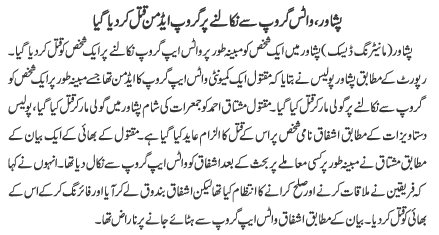 پشاور، واٹس گروپ سے نکالنے پر گروپ ایڈمن قتل کر دیا گیا
پشاور (مانیٹرنگ ڈیسک) پشاور میں ایک شخص کو مبینہ طور پر واٹس ایپ گروپ سے نکالنے پر ایک شخص کو قتل کر دیا گیا۔
رپورٹ کے مطابق پشاور پولیس نے بتایا کہ مقتول ایک کمیونٹی واٹس ایپ گروپ کا ایڈمن تھا جسے مبینہ طور پر ایک شخص کو
گروپ سے نکالنے پر گولی مار کر قتل کیا گیا۔ مقتول مشتاق احمد کو جمعرات کی شام پشاور میں گولی مار کر قتل کیا گیا، پولیس
دستاویزات کے مطابق اشفاق نامی شخص پر اس کے قتل کا الزام عاید کیا گیا ہے۔ مقتول کے بھائی کے ایک بیان کے
مطابق مشتاق نے مبینہ طور پر کسی معاملے پر بحث کے بعد اشفاق کو واٹس ایپ گروپ سے نکال دیا تھا۔ انہوں نے کہا
کہ فریقین نے ملاقات کرنے اور صلح کرانے کا انتظام کیا تھا لیکن اشفاق بندوق لے کر آیا اور فائرنگ کر کے اس کے
بھائی کو قتل کر دیا۔ بیان کے مطابق اشفاق واٹس ایپ گروپ سے ہٹائے جانے پر ناراض تھا۔